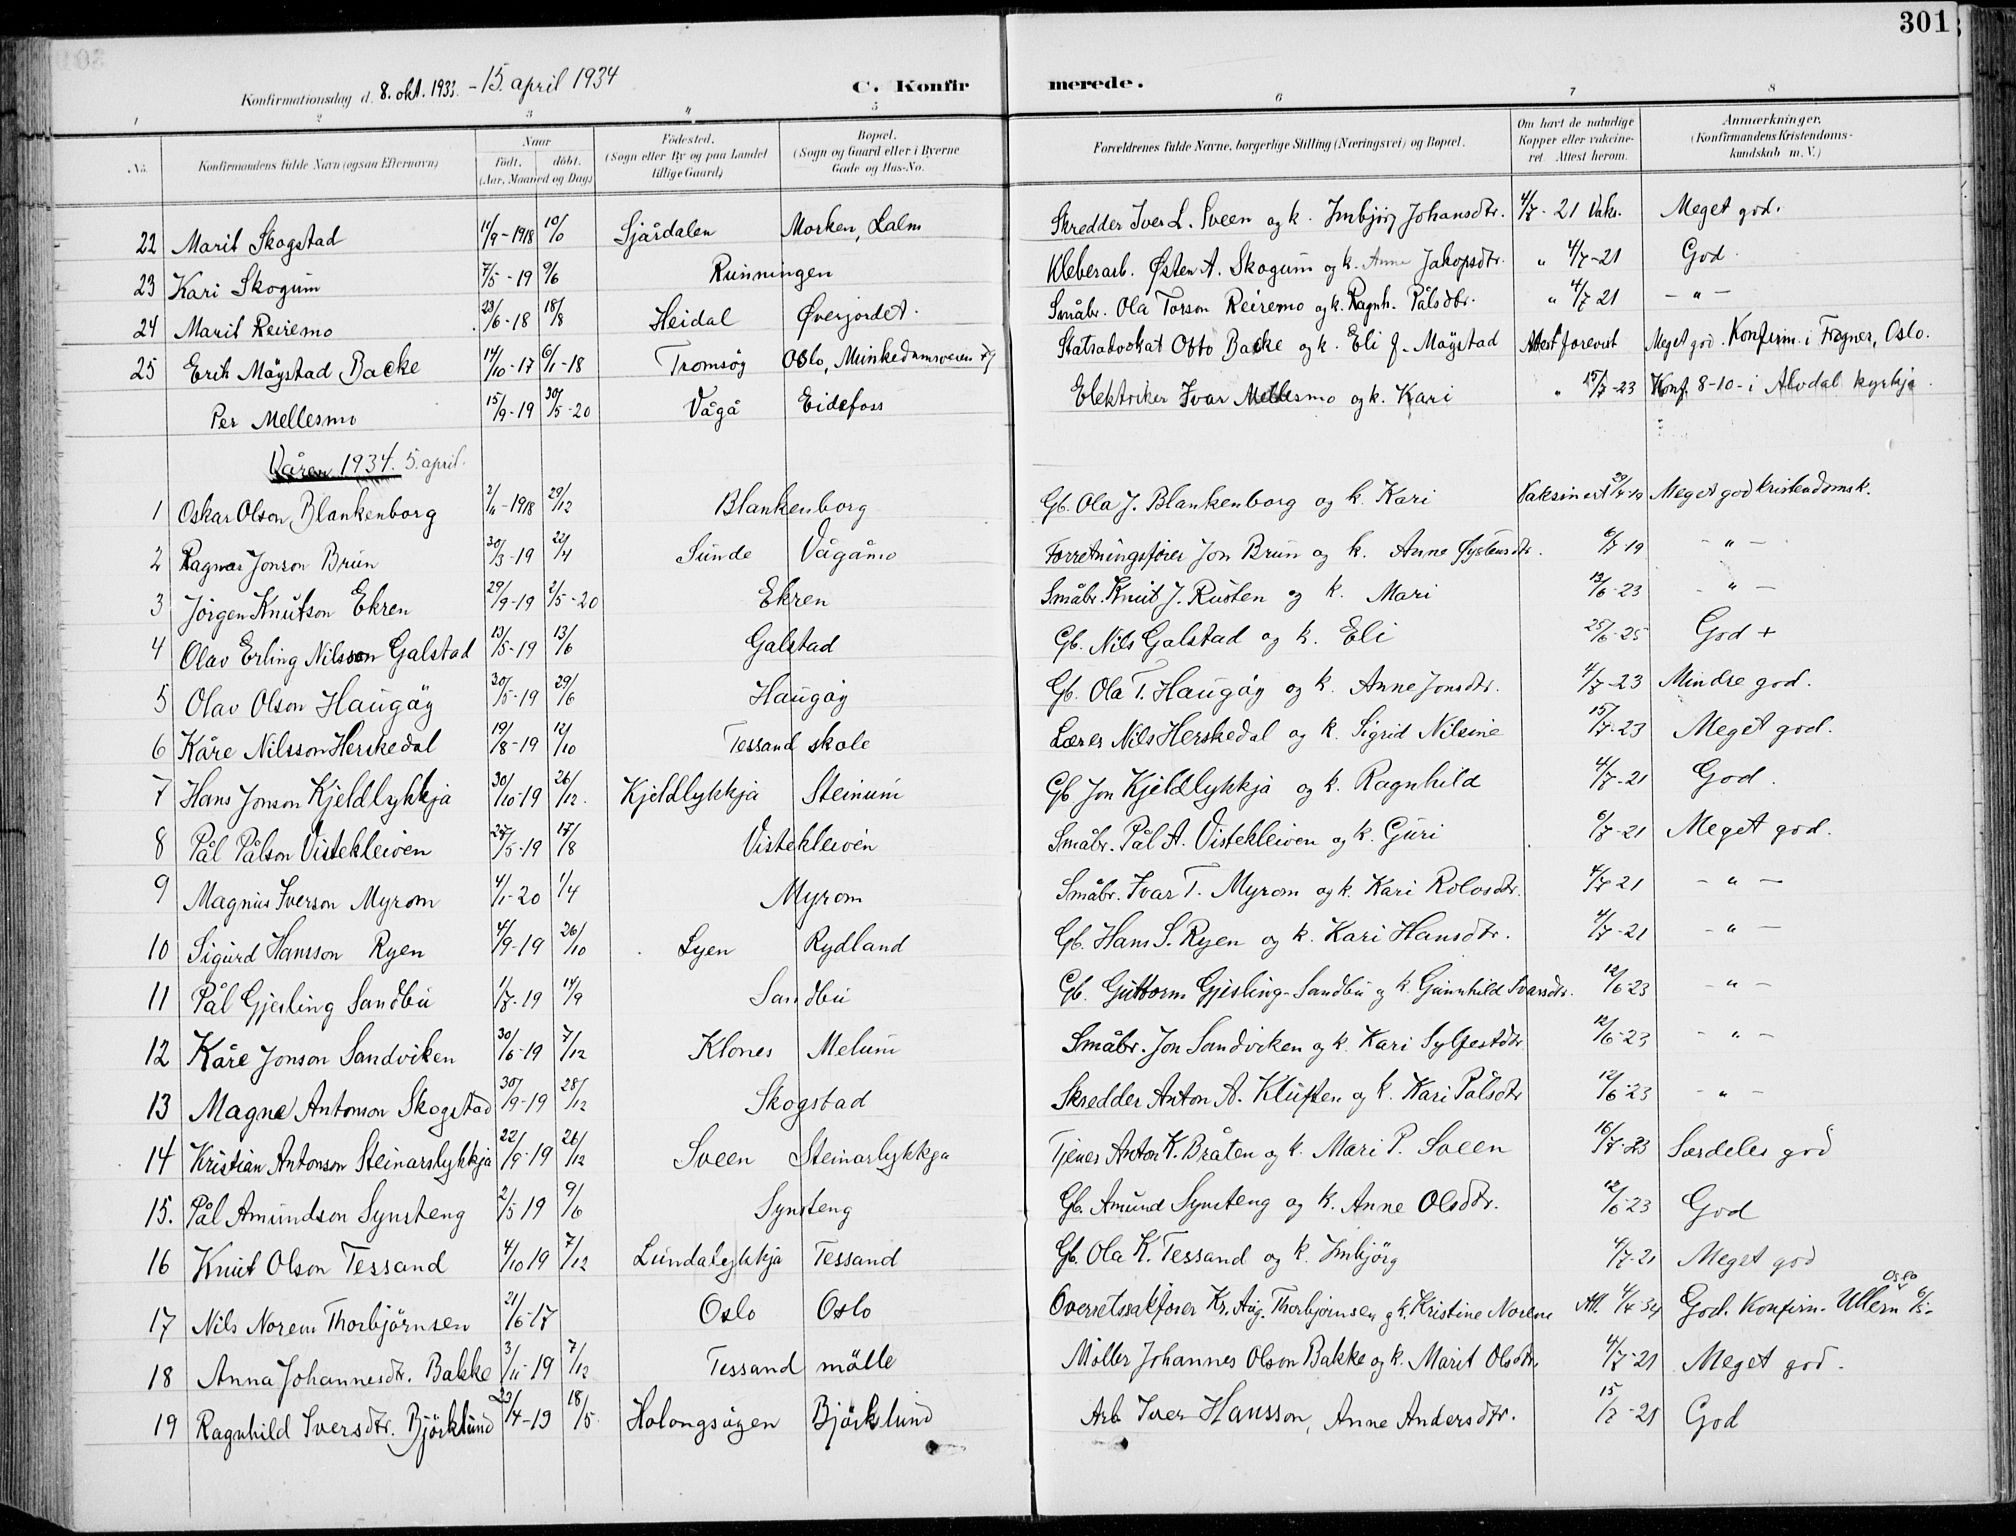 301
Konfirmationsdag d. 8. okt. 1933. - 15. april 1934
C. Konfirmerede.
1 2 3 4 5 6 7 8
No. | Konfirmandens fulde Navn (ogsaa Efternavn) | Naar født, døbt. (Aar, Maaned og Dag) | Fødested. (Sogn eller By og paa Landet tillige Gaard) | Bopæl. (Sogn og Gaard eller i Byerne Gade og Hus-No. | Forældrenes fulde Navne, borgerlige Stilling (Næringsvei) og Bopæl. | Om havt de naturlige Kopper eller vakcineret Attest herom. | Anmærkninger. (Konfirmandens Kristendomskundskab m. V.)
22 Marit Skogstad 11/9-1918 10/0 Sjårdalen Morken, Lalm Skredder Iver L. Sveen og k. Imbjørg Johansdtr. 4/7-21 Vaks. Meget god.
23 Kari Skogum 7/5-19 9/6 Runningen Kleberarb. Østen A. Skogum og k. Anne Jakopsdtr. " 4/7-21 God.
24 Marit Reiremo 23/6-18 18/8 Heidal Øverjordet. Småbr. Ola Torson Reiremo og k. Ragnh. Pålsdtr. " 4/7 21 - " -
25 Erik Møystad Backe 14/10-17 6/1-18 Tromsøy Oslo, Munkedamsveien 79 Statsadvokat Otto Backe og k. Eli f. Møystad Attest forevist Meget god. Konfirm. i Frogner, Oslo.
Per Mellesmo 15/9-19 30/5-20 Vågå Eidefoss Elektriker Ivar Mellesmo og k. Kari " 15/7-23 Konf. 8-10- i Alvdal kyrkja.
Våren 1934. 5. april.
1 Oskar Olson Blankenborg 2/11-1918 29/12 Blankenborg Gb. Ola J. Blankenborg og k. Kari Vaksinert Meget god kristendomsk.
2 Ragnar Jonson Brun 30/3-19 22/4 Sunde Vågåmo Forretningsfører Jon Brun og k. Anne Øystensdtr. 6/7-19 - " -
3 Jørgen Knutson Ekren 29/9-19 2/5-20 Ekren Småbr. Knut J. Rusten og k. Mari 13/6-23 - " -
4 Olav Erling Nilsson Galstad 13/5-19 13/6 Galstad Gb. Nils Galstad og k. Eli 25/6-25 God +
5 Olav Olson Haugøy 30/5-19 29/6 Haugøy Gb. Ola T. Haugøy og k. Anne Jonsdtr. 4/7-23 Mindre god.
6 Kåre Nilsson Herskedal 19/8-19 12/10 Tessand skole Lærer Nils Herskedal og k. Sigrid Nilsine 15/7-23 Meget god.
7 Hans Jonson Kjeldlykkja 30/10-19 26/12. Kjeldlykkja Steinum Gb Jon Kjeldlykkja og k. Ragnhild 4/7-21 God.
8 Pål Pålson Vistekleiven 27/5-19 17/8 Vistekleiven Småbr. Pål A. Vistekleiven og k. Guri 6/7-21 Meget god.
9 Magnus Iverson Myrom 4/1-20 1/4 Myrom Småbr. Ivar T. Myrom og k. Kari Rolvsdtr. 4/7 21 - " -
10 Sigurd Hansson Ryen 4/9-19 26/10 Lyen Rydland Gb. Hans S. Ryen og k. Kari Hansdtr. 4/7-21 - " -
11 Pål Gjesling Sandbu 1/7-19 14/9 Sandbu Gb. Guttorm Gjesling-Sandbu og k. Gunnhild Ivarsdtr. 12/6-23 - " -
12 Kåre Jonson Sandviken 30/6-19 7/12 Klones Melum Småbr. Jon Sandviken og k. Kari Sylfestdtr 12/6-23 - " -
13 Magne Antonson Skogstad 30/9-19 28/12 Skogstad Skredder Anton A. Kluften og k. Kari Pålsdtr 12/6-23 - " -
14 Kristian Antonson Steinarslykkja 22/9-19 26/12 Sveen Steinarlykkja Tjener Anton K. Bråten og k. Mari P. Sveen 16/7-23 Særdeles god
15. Pål Amundson Synsteng 2/5 19 9/6 Synsteng Gb. Amund Synsteng og k. Anne Olsdtr. 12/6-23 God
16 Knut Olson Tessand 4/10 19 7/12 Lundalykkja Tessand Gb. Ola K. Tessand og k. Imbjörg 4/7-21 Meget god
17 Nils Norem Thorbjörnsen 21/6-17 Oslo Oslo Overretssakfører Kr. Aug. Thorbjørnsen og k. Kristine Norene Att. 4/4-34 God. Konfirm. Ullern Oslo 6/5-
18 Anna Johannesdtr. Bakke 3/11-19 7/12 Tessand mölle Møller Johannes Olson Bakke og k. Marit Olsdtr. 4/7-21 Meget god.
19 Ragnhild Iversdtr. Björklund 23/4-19 18/5. Holongsøyen Bjørklund Arb Iver Hansson, Anne Andersdtr. 15/7-21 God